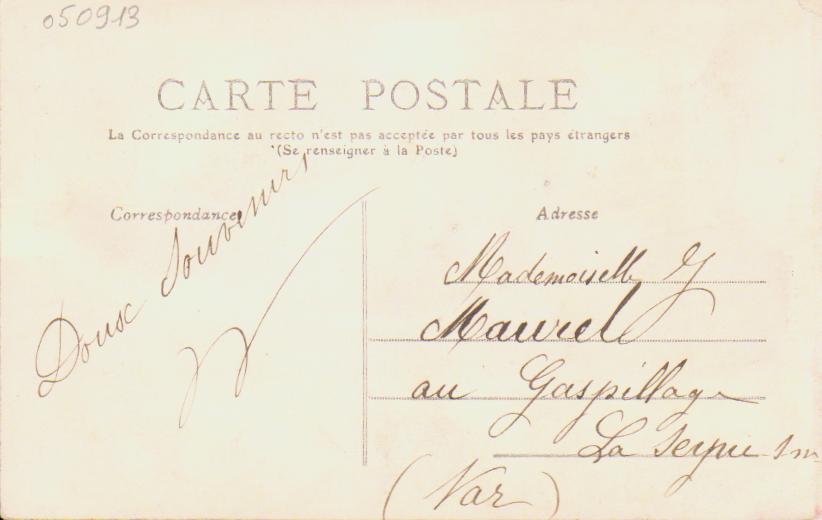 050913
CARTE POSTALE
La Correspondance au recto n'est pas acceptée par tous les pays étrangers
(Se renseigner à la Poste)
Correspondance
Adresse
Doux Souvenirs
Mademoiselle Y
Maurel
au Gaspillage
La Seyne s m
(Var)